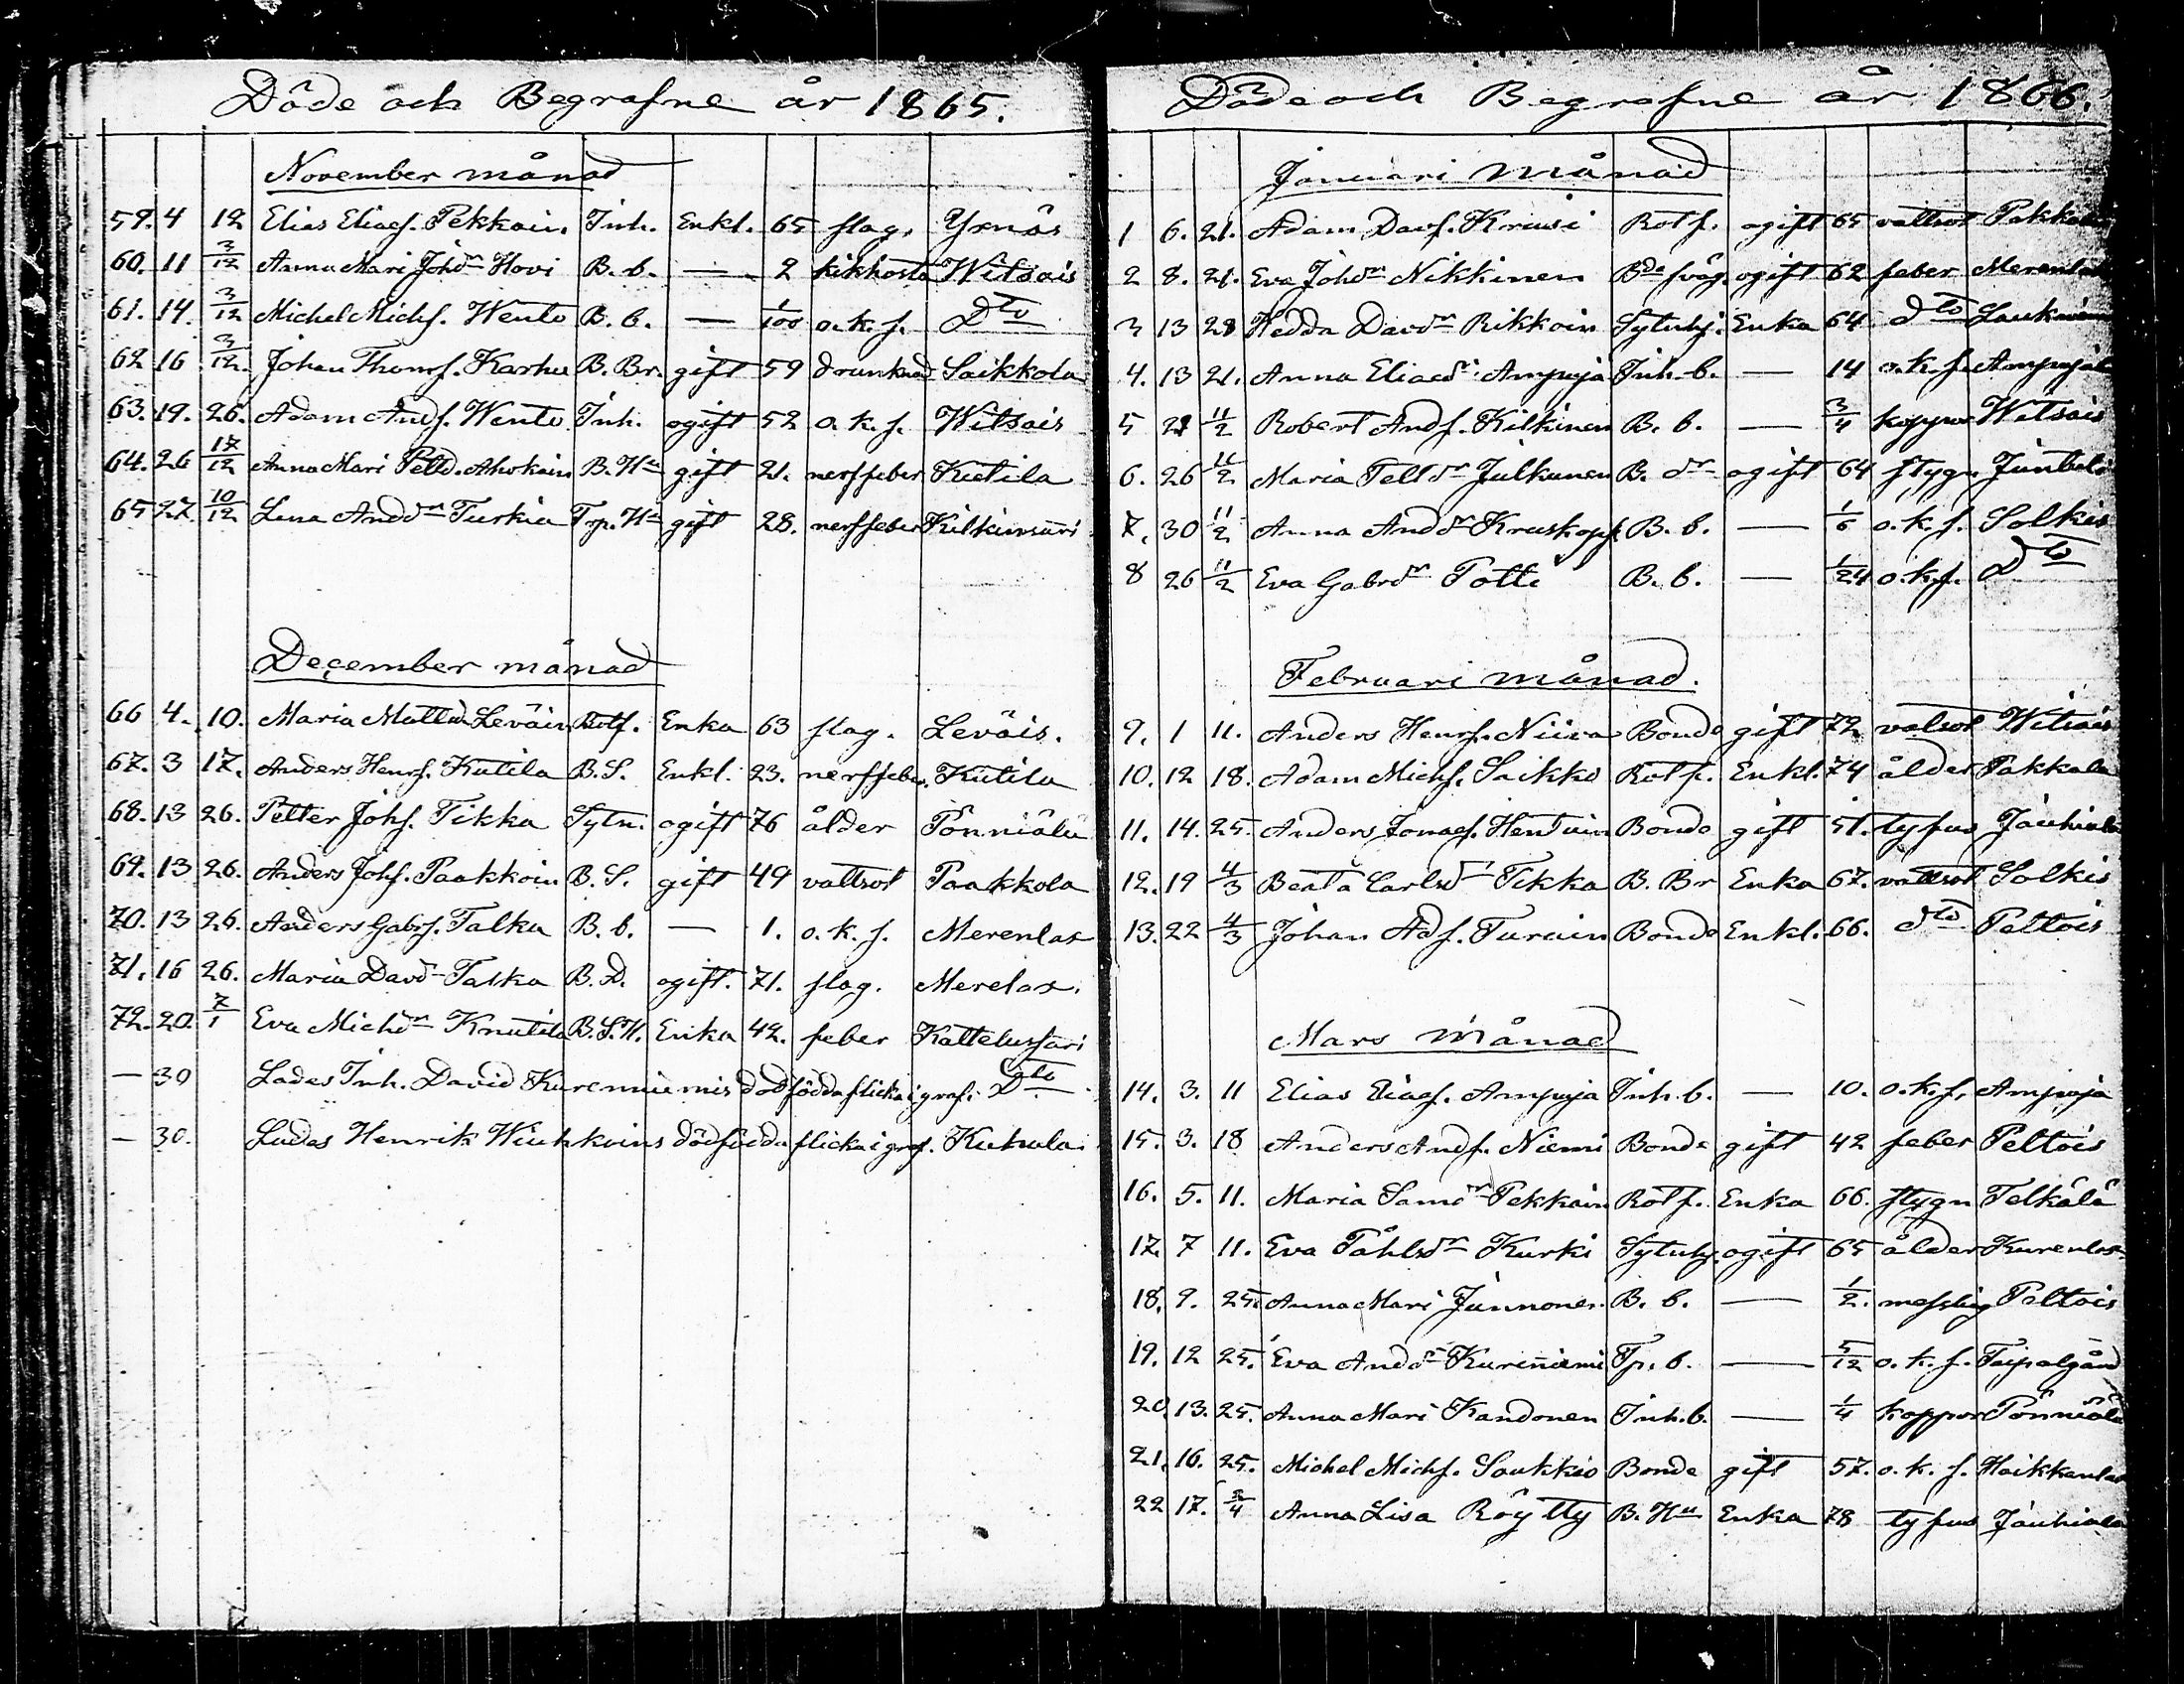 Döde och Begrafne år 1865.
November månad
59. 4 12 Elias Eliass. Pekkain. Inh. Enkl. 65 slag. Yxnäs
60. 11 3/12 Anna Mari Johdr Hovi B. b. — 2 kikhosta Witsais
61. 14. 3/12 Michel Michs. Wento B. b. — 1/100 o. k. s. Dto
62 16 3/12. Johan Thoms. Karhu B. Br. gift 59 drunknad Saikkola
63. 19. 26. Adam Ands. Wento Inh. ogift 52 o. k. s. Witsais
64. 26 17/12 Anna Mari Petd. Ahokain B. Hu gift 21. nerffeber Kutila
65 27. 10/12 Lena Anddr Turkia Tp. Hu gift 28. nerffeber Kilkinsari
December månad
66 4. 10. Maria Mattsd Leväin Rotf. Enka 63 slag. Leväis.
67. 3 17. Anders Henrs. Kutila B. S. Enkl. 23. nerffeber. Kutila
68. 13 26. Petter Johs. Tikka Sytn. ogift 76 ålder Pönniälä
69. 13 26. Anders Johs. Paakkoin B. S. gift 49 vattsot Paakkola
70. 13 26. Anders Gabrs. Talka B. b. — 1. o. k. s. Merenlax
71. 16 26. Maria Davdr Talka B. D. ogift. 71. slag. Merelax.
72. 20. 7/1 Eva Michdr Knutila B. S. H. Enka 42. feber Kattelussari
— 30 Lades Inh. David Kurenniemis dödfödda flicka i graf. Dto
— 30. Lades Henrik Wiuhkoins dödfödda flicka i graf. Kuhala.
Döde och Begrafne år 1866.
Januari månad
1 6. 21. Adam Davs. Kruusi Rotf. ogift 65 vattsot Pakkola
2 8. 21. Eva Johdr Nikkinen Bde svåg. ogift 62 feber Merenlax
3 13 28 Hedda Davdr Rikkoin Sytnhj. Enka 64 dto
4. 13 21. Anna Eliasdr Ampuja Inh. b. — 14 o. k. s. Ampujala
5 21 11/2 Robert Ands. Kilkinen B. b. — 3/4 koppor Witsais
6. 26 11/2 Maria Pettdr Julkunen B. dr ogift 64 stygn
7. 30 11/2 Anna Anddr Kruskopf B. b. — 1/6 o. k. s. Solkis
8 26 11/2 Eva Gabrdr Potti B. b. — 1/24 o. k. s. Dto
Februari månad.
9. 1 11. Anders Henrs. Niiva Bonde gift 72 vatsot Witsais
10. 12 18. Adam Michs. Saikko Rotf. Enkl. 74 ålder Pakkala
11. 14. 25. Anders Jonass. Hentuin Bonde gift 51. tyfus Jäuhiala
12. 19 4/3 Beata Carlsdr Tikka B. Br Enka 67. vattsot Solkis
13. 22 4/3 Johan Ads. Turuin Bonde Enkl. 66. dto Peltois
Mars månad
14. 3. 11 Elias Eliass. Ampuja Inh. b. — 10. o. k. s. Ampuja
15. 3. 18 Anders Ands. Niemi Bonde gift 42 feber Peltois
16. 5. 11. Maria Samdr Pekkain Rotf. Enka 66. stygn Telkälä
17. 7 11. Eva Påhlsdr Kurki Sytnhj. ogift 65 ålder Kurenlax
18. 9. 25. Anna Mari Junnonen. B. b. — 1/2. messling Peltois
19. 12 25. Eva Anddr Kureniemi Tp. b. — 5/12 o. k. s.
20. 13. 25. Anna Mari Kandonen Inh. b. — 1/4 koppor Pönniälä
21. 16. 25. Michel Michs. Saukkio Bonde gift 57. o. k. s. Haikkanlax
22 17. 2/4 Anna Lisa Röytty B. Hu Enka 78 tyfus Jäuhiala